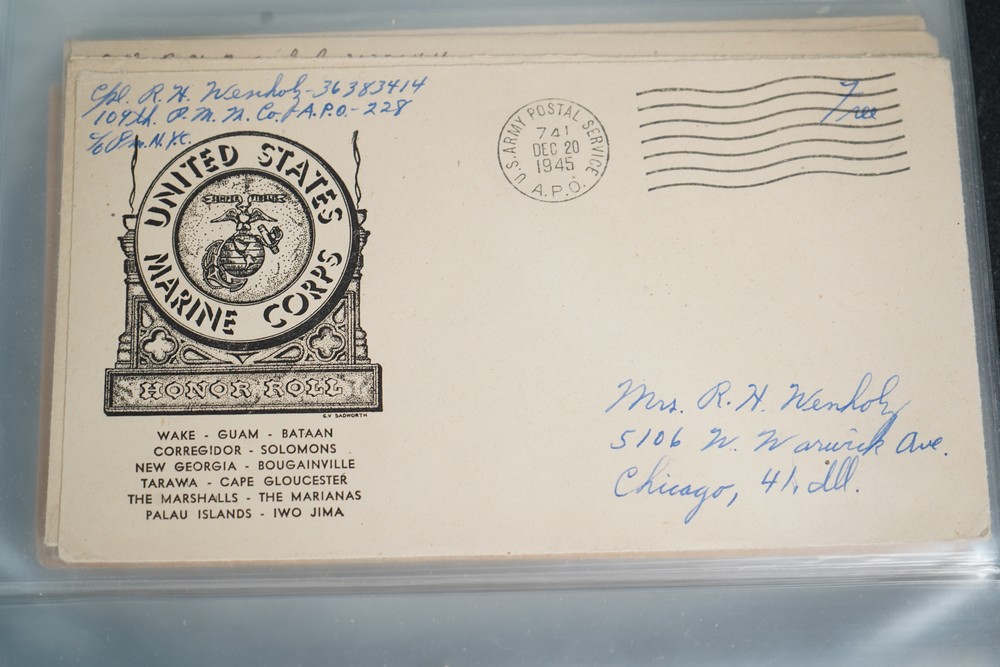 Cpl. R. H. Wenholz-36383414
109th. P. M. M. Co., A.P.O.-228
c/o P.m. N.Y.C.
U.S. ARMY POSTAL SERVICE
741
DEC 20
1945
A.P.O.
Free
UNITED STATES
SEMPER FIDELIS
MARINE CORPS
HONOR ROLL
G.V SADWORTH
WAKE - GUAM - BATAAN
CORREGIDOR - SOLOMONS
NEW GEORGIA - BOUGAINVILLE
TARAWA - CAPE GLOUCESTER
THE MARSHALLS - THE MARIANAS
PALAU ISLANDS - IWO JIMA
Mrs. R. H. Wenholz
5106 W. Warwick Ave.
Chicago, 41, Ill.